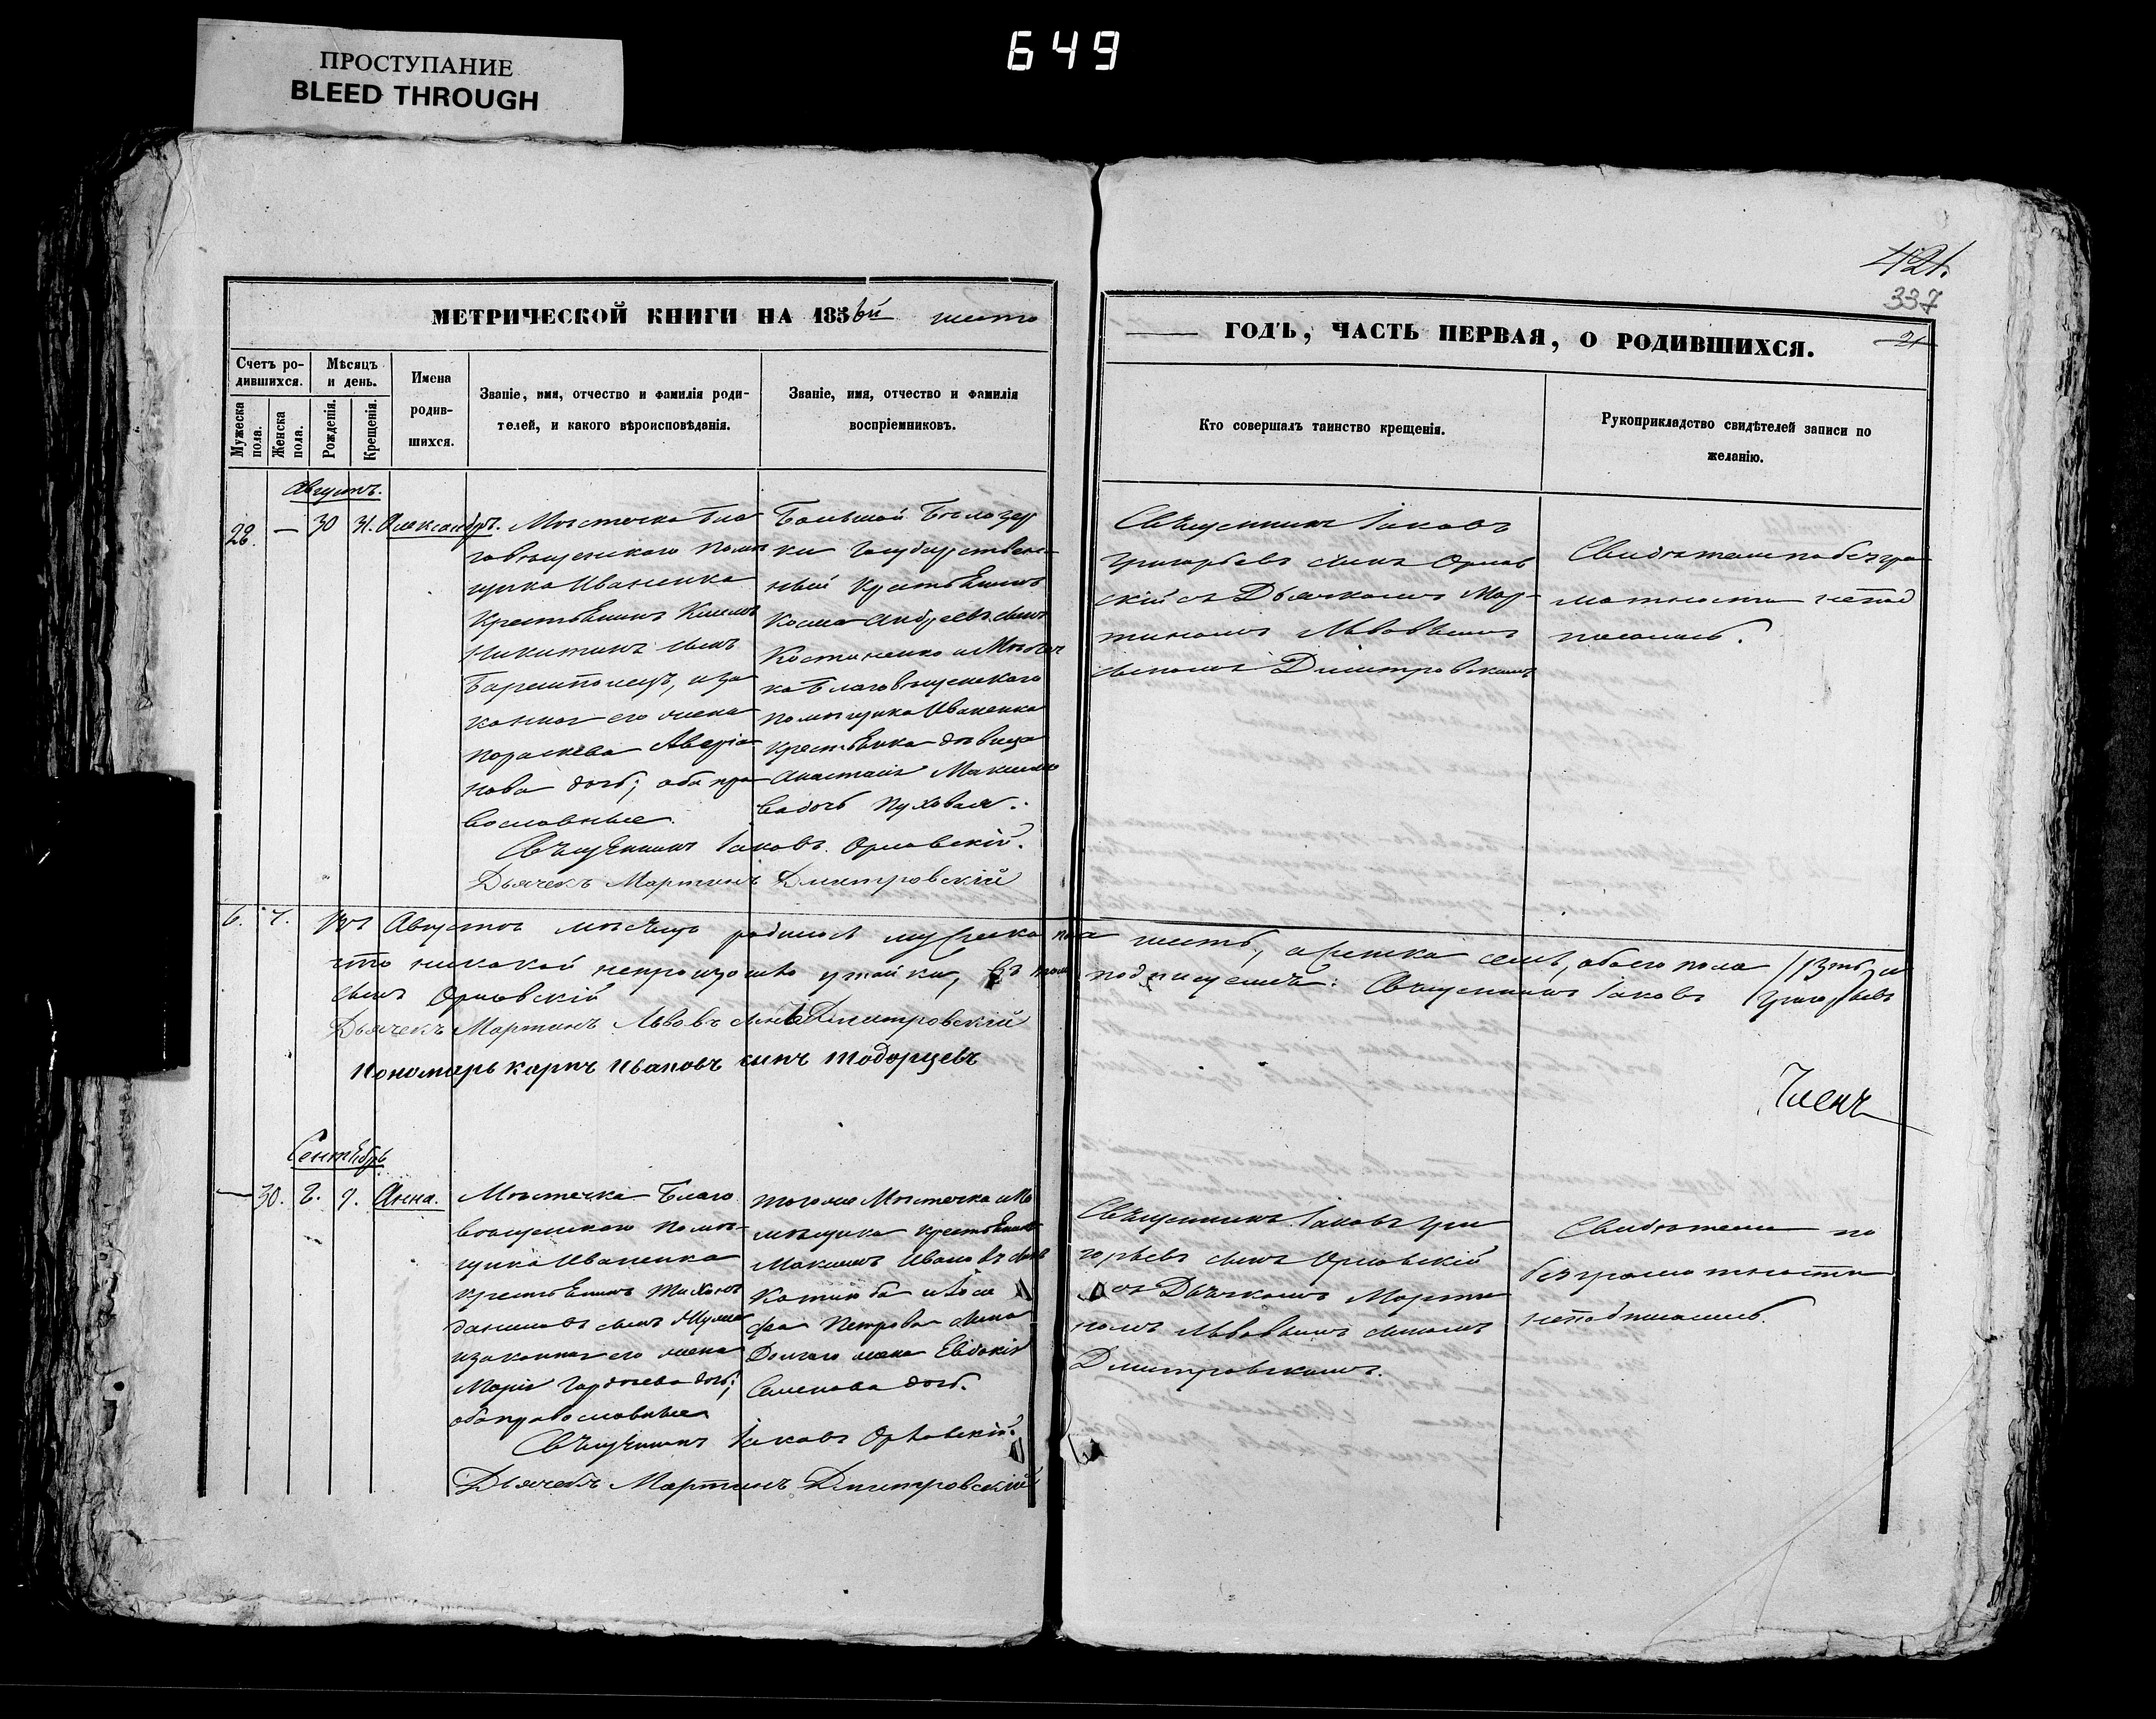 649
ПРОСТУПАНИЕ
BLEED THROUGH
421.
337
МЕТРИЧЕСКОЙ КНИГИ НА 1856й
ГОДЪ, ЧАСТЬ ПЕРВАЯ, О РОДИВШИХСЯ.
Счетъ родившихся.
Мѣсяцъ и день.
Мужеска пола.
Женска пола.
Рожденія.
Крещенія.
Имена
родив-
шихся.
Званіе, имя, отчество и фамилія роди-
телей, и какого вѣроисповѣданія.
Званіе, имя, отчество и фамилія
воспріемниковъ.
Кто совершалъ таинство крещенія.
Рукоприкладство свидѣтелей записи по
желанію.
Августъ.
28. — 30 31. Александръ.
Мѣстечка Бла
говѣщенского помѣ
щика Иваненка
Крестьянинъ
Никитинъ сынъ
, и за
конная его жена
Параскева Аверіа
нова дочь; оба пра
вославные.
Большой Бѣлозер
ки Государствен
ный Крестьянинъ
Косма Андреевъ сынъ
Костиненко и Мѣстеч
ка Благовѣщенского
помѣщика Иваненка
крестьянка дѣвица
Анастасія Максимо
ва дочь Пуховая.
Священникъ Іаковъ
Григорьевъ сынъ Орлов
скій съ Дьячкомъ Мар-
тиномъ Львовымъ
сыномъ Дмитровскимъ
Свидѣтели по безгра
мотности непод
писались.
Священникъ Іаковъ Орловскій.
Дьячекъ Мартинъ Дмитровскій
6. 7. Въ Августѣ мѣсяцѣ родилось мужеска пола шесть, а женска семь, обоего пола /13ть/ и
что никакой непроизошло утайки, въ томъ подписуемся: Священникъ Іаковъ Григорьевъ
сынъ Орловскій
Дьячекъ Мартинъ Львовъ сынъ Дмитровскій
Пономарь Карпъ Ивановъ сынъ Тодорцевъ
Членъ
Сентябрь
— 30. 2. 9. Анна.
Мѣстечка Благо
вѣщенского помѣ-
щика Иваненка
крестьянинъ Тихонъ
Даниловъ сынъ
и законная его жена
Марія Гордѣева дочь;
оба православные
тогоже Мѣстечка и по
мѣщика крестьянинъ
Максимъ Ивановъ сынъ
и Іоси
фа Петрова сына
Долгаго жена Евдокія
Семенова дочь.
Священникъ Іаковъ Гри
горьевъ сынъ Орловскій
съ Дьячкомъ Марти
номъ Львовымъ сыномъ
Дмитровскимъ.
Свидѣтели по
безграмотности
неподписались.
Священникъ Іаковъ Орловскій.
Дьячекъ Мартинъ Дмитровскій